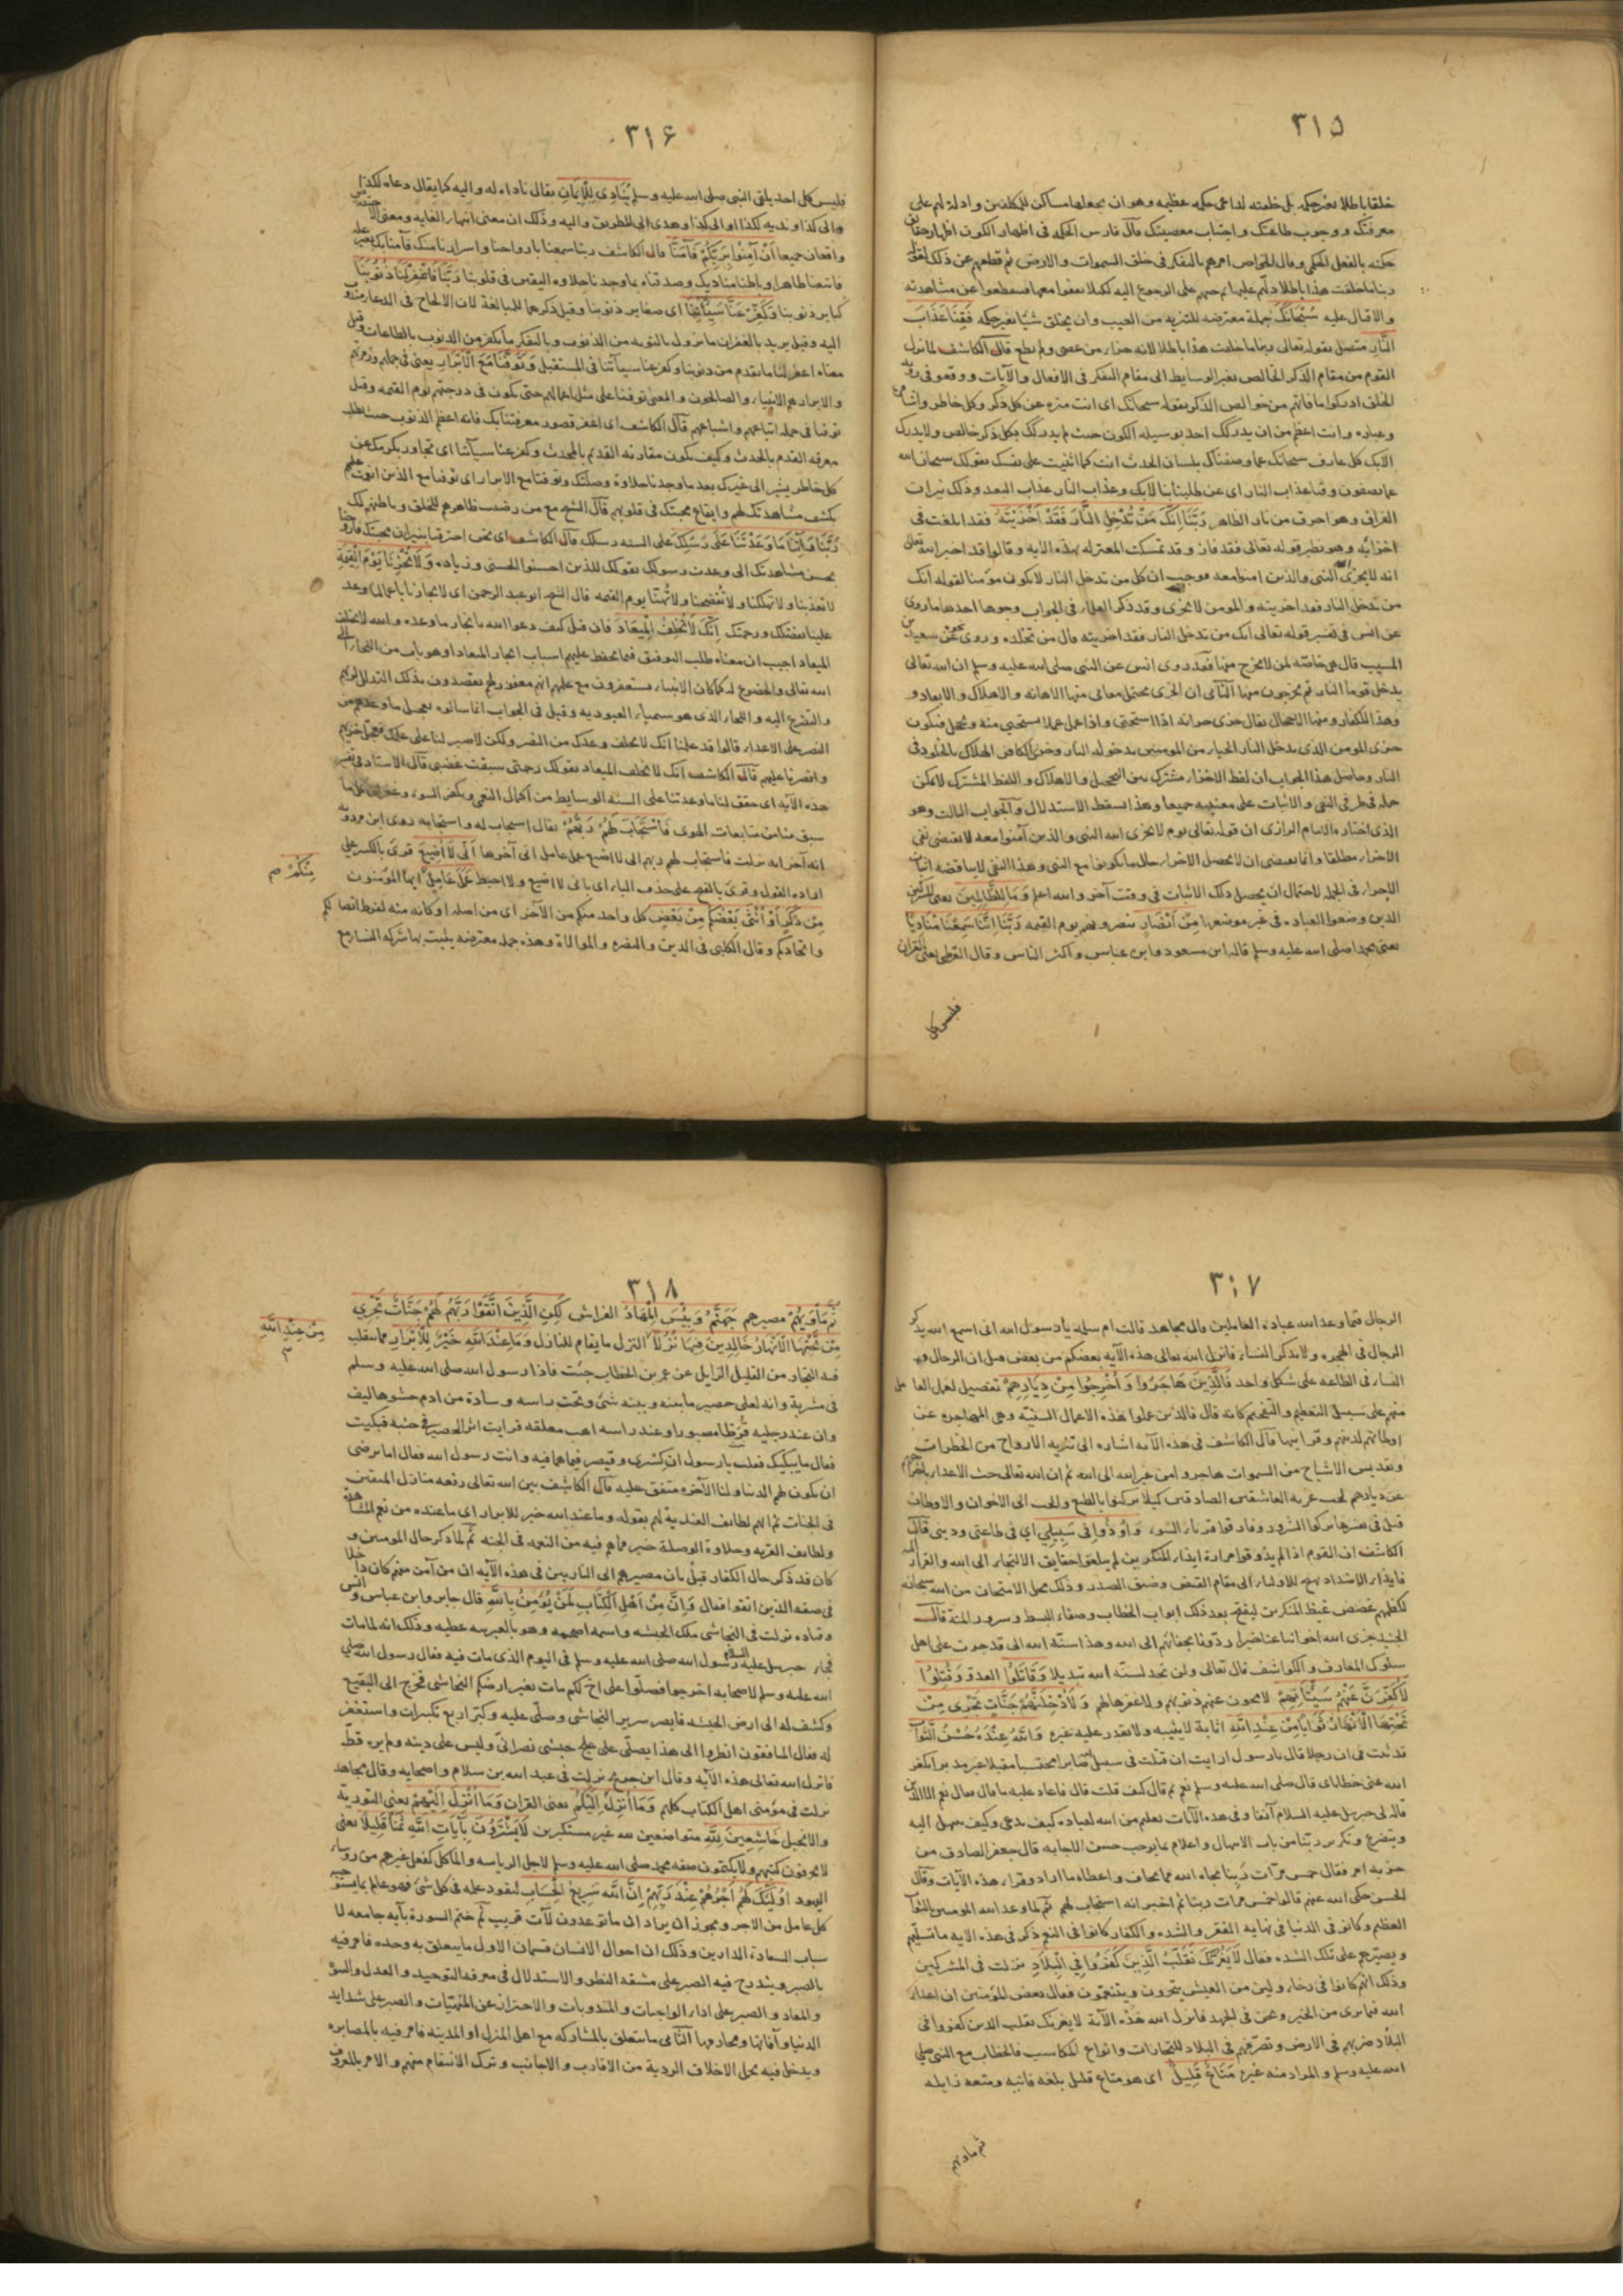 ٣١٥
خلقا باطلا بغير حكمه بل خلقته لداعى حكمه عظيمه وهو ان يجعلها مساكن للمكلفين وادلة لهم على
معرفتك ووجوب طاعتك واجتناب معصيتك قال فارس الحكمه فى اظهار الكون اظهار حقايق
حكمته بالفعل الحكمى وقال الخواص امرهم بالتفكر فى خلق السموات والارض ثم قطعهم عن ذلك بقوله
ربنا ما خلقت هذا باطلا
والاقبال عليه سُبْحَانَكَ جملة معترضه للتنزيه من العبث وان يخلق شيًا بغير حكمه فَقِنَا عَذَابَ
النَّارِ متصل بقوله تعالى ربنا ما خلقت هذا باطلا لانه جزاء من عصى ولم يطع قال الكاشف لما نزل
القوم من مقام الذكر الخالص بغير الوسايط الى مقام التفكر فى الافعال والآيات ووقعوا فى رؤية
الخلق ادركوا ما فاتهم من خوالص الذكر بقوله سبحانك اى انت منزه عن كل ذكر وكل خاطر واشارة
وعباره وانت اعظم من ان يدركك احد بوسيله الكون حيث لم يدركك بكل ذكر خالص ولا يدرك
الابك كل عارف سبحانك عما وصفناك بلسان الحدث انت كما اثنيت على نفسك بقولك سبحان الله
عما يصفون وقنا عذاب النار اى عن طلبنا بنا لا بك وعذاب النار عذاب البعد وذلك نيرات
الفراق وهو احرق من نار الظاهر رَبَّنَا اِنَّكَ مَنْ تُدْخِلِ النَّارَ فَقَدْ اَخْزَيْتَهُ فقد ابلغت فى
اخزائه وهو نظير قوله تعالى فقد فاز وقد تمسكت المعتزله بهذه الايه وقالوا قد اخبر الله تعالى
انه لا يخزى النبى والذين امنوا معه فوجب ان كل من تدخل النار لا يكون مؤمنا لقوله انك
من تدخل النار فقد اخزيته والمومن لا يخزى وقد ذكر العلماء فى الجواب وجوها احدها ما روى
عن انس فى تفسير قوله تعالى انك من تدخل النار فقد اخزيته قال من تخلده وروى عن سعيد بن
المسيب قال هى خاصّه لمن لا يخرج منها فقد روى انس عن النبى صلى الله عليه وسلم ان الله تعالى
يدخل قوما النار ثم يخرجون منها الثانى ان الخزى يحتمل معانى منها الاهانه والاهلاك والابعاد و
وهذا للكفار ومنها الاخجال يقال خزى خزايه اذا استحيى واذا عمل عملا يستحيى منه ويخجل فيكون
خزى المومن الذى يدخل النار الحياء من المومنين بدخوله النار وخزى الكافر الهلاك بالخلود فى
النار وحاصل هذا الجواب ان لفظ الاخزاء مشترك بين التخجيل والاهلاك واللفظ المشترك لا يمكن
حمله فى طرفى النفى والاثبات على معنييه جميعا وهذا يسقط الاستدلال والجواب الثالث وهو
الذى اختاره الامام الرازى ان قوله تعالى يوم لا يخزى الله النبى والذين آمنوا معه لا يقتضى نفى
الاخزاء مطلقا وانما يقتضى ان لا يحصل الاخزاء حال ما يكونوا مع النبى وهذا النفى لا يناقضه اثبات
الاخزاء فى الجمله لاحتمال ان يحصل ذلك الاثبات فى وقت آخر والله اعلم وَمَا لِلظَّالِمِينَ يعنى المشركين
الذين وضعوا العباده فى غير موضعها مِنْ اَنْصَارٍ ينصرونهم يوم القيمه رَبَّنَا اِنَّنَا سَمِعْنَا مُنَادِيًا
يعنى محمدا صلى الله عليه وسلم قاله ابن مسعود وابن عباس واكثر الناس وقال القرظى يعنى القران
فليس كل
٣١۶
فليس كل احد يلقى النبى صلى الله عليه وسلم يُنَادِى لِلْاِيمَانِ يقال ناداه له واليه كما يقال دعاه لكذا
والى كذا وندبه لكذا او الى كذا وهدى الى الطريق واليه وذلك ان معنى انتهاء الغايه ومعنى الاختصاص
واقعان جميعا اَنْ آمِنُوا بِرَبِّكُمْ فَآمَنَّا قال الكاشف ربنا سمعنا بارواحنا واسرارنا منك فآمنا بك بغير علة
فاتبعنا ظاهرا وباطنا مناديك وصدقناه بما وجدنا حلاوه اليقين فى قلوبنا رَبَّنَا فَاغْفِرْ لَنَا ذُنُوبَنَا
كباير ذنوبنا وَكَفِّرْ عَنَّا سَيِّآتِنَا اى صغاير ذنوبنا وقيل ذكرهما للمبالغة لان الالحاح فى الدعاء مندوب
اليه وقيل يريد بالغفران ما يزول بالتوبه من الذنوب وبالتكفير ما يكفر من الذنوب بالطاعات وقيل
معناه اغفر لنا ما تقدم من ذنوبنا وكفر عنا سيآتنا فى المستقبل وَتَوَفَّنَا مَعَ الْاَبْرَارِ يعنى فى جملتهم وزمرتهم
والابرار هم الانبياء والصالحون والمعنى توفنا على مثل اعمالهم حتى نكون فى درجتهم يوم القيمه وقيل
توفنا فى جمله اتباعهم واشياعهم قال الكاشف اى اغفر قصور معرفتنا بك فانه اعظم الذنوب حيث يطلب
معرفه القدم بالحدث وكيف يكون مقارنه القديم بالمحدث وكفر عنا سيآتنا اى تجاوز بكرمك عن
كل خاطر يشير الى غيرك بعد ما وجدنا حلاوة وصلتك وتوفنا مع الابرار اى توفنا مع الذين انعمت عليهم
بكشف مشاهدتك لهم وايقاع محبتك فى قلوبهم قال الشيخ مع من رضيت ظاهرهم للخلق وباطنهم لك
رَبَّنَا وَآتِنَا مَا وَعَدْتَنَا عَلَى رُسُلِكَ على السنه رسلك قال الكاشف اى نحن احترقنا بنيران محبتك فارزقنا
بحسن مشاهدتك التى وعدت رسولك بقولك للذين احسنوا الحسنى وزياده وَلَا تُخْزِنَا يَوْمَ الْقِيمَةِ
لا تعذبنا ولا تهلكنا ولا تفضحنا ولا تهنّا يوم القيمه قال الشيخ ابو عبد الرحمن اى لا تجازنا باعمالنا وعد
علينا بفضلك ورحمتك اِنَّكَ لَا تُخْلِفُ الْمِيعَادَ فان قيل كيف دعوا الله بانجاز ما وعده والله لا يخلف
الميعاد اجيب ان معناه طلب التوفيق فيما يحفظ عليهم اسباب انجاز الميعاد او هو باب من اللجاء الى
الله تعالى والخضوع له كما كان الانبياء يستغفرون مع علمهم انهم مغفور لهم يقصدون بذلك التذلل لربهم
والتضرع اليه واللجاء الذى هو سيماء العبوديه وقيل فى الجواب انما سالوه تعجيل ما وعدهم من
النصر على الاعداء قالوا قد علمنا انك لا تخلف وعدك من النصر ولكن لا صبر لنا على حلمك فعجل خزيهم
وانصرنا عليهم قال الكاشف انك لا تخلف الميعاد بقولك رحمتى سبقت غضبى قال الاستاد فى تفسير
هذه الآيه اى حقق لنا ما وعدتنا على السنه الوسايط من اكمال النعمى وتكفير السوء وغفران كل ما
سبق منا من متابعات الهوى فَاسْتَجَابَ لَهُمْ رَبُّهُمْ يقال استجاب له واستجابه روى ابن مردويه
انه آخر ايه نزلت فاستجاب لهم ربهم انى لا اضيع عمل عامل الى آخرها اَنِّى لَا اُضِيعُ قرئ بالكسر على
اراده القول وقرئ بالفتح على حذف الباء اى بانى لا اضيع ولا احبط عَمَلَ عَامِلٍ ايها المؤمنون
مِنْكُمْ صح
مِنْ ذَكَرٍ اَوْ اُنْثَى بَعْضُكُمْ مِنْ بَعْضٍ كل واحد منكم من الآخر اى من اصله او كانه منه لفرط اتصالكم
واتحادكم وقال الكلبى فى الدين والنصره والموالاة وهذه جمله معترضه يثبت بها شركه النساء مع
٣١٧
الرجال فيما وعد الله عباده العاملين قال مجاهد قالت ام سلمه يا رسول الله انى اسمع الله يذكر
الرجال فى الهجره ولا يذكر النساء فانزل الله تعالى هذه الآيه بعضكم من بعض قيل ان الرجال و
النساء فى الطاعه على شكل واحد فَالَّذِينَ هَاجَرُوا وَاُخْرِجُوا مِنْ دِيَارِهِمْ تفصيل لعمل العامل
منهم على سبيل التعظيم والتفخيم كانه قال فالذين عملوا هذه الاعمال السنيّه وهى المهاجره عن
اوطانهم لدينهم قال الكاشف فى هذه الآيه اشاره الى تنزيه الارواح من الخطرات
وتقديس الاشباح من السموات هاجروا من غير الله الى الله ثم ان الله تعالى حث الاعداء باخراجهم
عن ديارهم لحب غربه العاشقين الصادقين كيلا يركنوا بالطبع والحب الى الاخوان والاوطان
وَاُوذُوا فِى سَبِيلِى اى فى طاعتى ودينى قال
الكاشف ان القوم اذا لم يذوقوا مرارة ايذاء المنكرين لم يبلغوا حقايق الالتجاء الى الله والفرار اليه
للاولياء الى مقام القبض وضيق الصدر وذلك محل الامتحان من الله سبحانه
لكظمهم غصص غيظ المنكرين ليفتح بعد ذلك ابواب الخطاب وصفاء البسط وسرور المنة قال
الجنيد جزى الله اخواننا عنا خيرا ردّونا بجفائهم الى الله وهذا سنّه الله التى قد جرت على اهل
سلوك المعارف والكواشف قال تعالى ولن تجد لسنّه الله تبديلا وَقَاتَلُوا العدو وَقُتِلُوا
لَاُكَفِّرَنَّ عَنْهُمْ سَيِّئَاتِهِمْ لامحون عنهم ذنوبهم ولاغفرها لهم وَلَاُدْخِلَنَّهُمْ جَنَّاتٍ تَجْرِى مِنْ
تَحْتِهَا الْاَنْهَارُ ثَوَابًا مِنْ عِنْدِ اللَّهِ اثابة لا يثيبه ولا يقدر عليه غيره وَاللَّهُ عِنْدَهُ حُسْنُ الثَّوَابِ
قد ثبت ان رجلا قال يا رسول الله ارايت ان قتلت فى سبيل الله صابرا محتسبا مقبلا غير مدبر ايكفر
الله عنى خطاياى قال صلى الله عليه وسلم نعم ثم قال كيف قلت قال فاعاد عليه ما قال فقال نعم الا الدين
قاله لى جبريل عليه السلام آنفا وفى هذه الآيات تعليم من الله لعباده كيف يدعى وكيف يبتهل اليه
ويتضرع وتكرير ربنا من باب الابتهال واعلام بما يوجب حسن الاجابه قال جعفر الصادق من
حزبه امر فقال خمس مرات ربنا نجاه الله مما يخاف واعطاه ما اراد وقراء هذه الآيات وقال
الحسن حكى الله عنهم قالوا خمس مرات ربنا ثم اخبر انه استجاب لهم ثم لما وعد الله المومنين بالثواب
العظيم وكانوا فى الدنيا فى نهايه الفقر والشده والكفار كانوا فى النعم ذكر فى هذه الايه ما تسليهم
ويصبّرهم على تلك الشده فقال لَا يَغُرَّنَّكَ تَقَلُّبُ الَّذِينَ كَفَرُوا فِى الْبِلَادِ نزلت فى المشركين
وذلك انهم كانوا فى رخاء ولين من العيش يتجرون ويتنعمون فقال بعض المؤمنين ان اعداء
الله فيما نرى من الخير ونحن فى الجهد فانزل الله هذه الآية لا يغرنك تقلب الذين كفروا فى
البلاد ضربهم فى الارض وتصرفهم فى البلاد للتجارات وانواع المكاسب فالخطاب مع النبى صلى
الله عليه وسلم والمراد منه غيره مَتَاعٌ قَلِيلٌ اى هو متاع قليل بلغه فانيه ومتعه زايله
ثم ماويهم
٣١٨
ثُمَّ مَأْوَيهُمْ مصيرهم جَهَنَّمُ وَبِئْسَ الْمِهَادُ الفراش لَكِنِ الَّذِينَ اتَّقَوْا رَبَّهُمْ لَهُمْ جَنَّاتٌ تَجْرِى
مِنْ تَحْتِهَا الْاَنْهَارُ خَالِدِينَ فِيهَا نُزُلًا النزل ما يقام للنازل وَمَا عِنْدَ اللَّهِ خَيْرٌ لِلْاَبْرَارِ مما يتقلب
مِنْ عِنْدِ اللَّهِ
فيه الفجار من القليل الزايل عن عمر بن الخطاب جئت فاذا رسول الله صلى الله عليه وسلم
فى مشربة وانه لعلى حصير ما بينه وبينه شئ وتحت راسه وسادة من ادم حشوها ليف
وان عند رجليه قرظا مصبورا وعند راسه اهب معلقه فرايت اثر الحصير فى جنبه فبكيت
فقال ما يبكيك فقلت يا رسول الله ان كسرى وقيصر فيما هما فيه وانت رسول الله فقال اما ترضى
ان يكون لهم الدنيا ولنا الآخره متفق عليه قال الكاشف بين الله تعالى رفعه منازل المتقين
فى الجنات ثم ابهم لطايف العنديه لهم بقوله وما عند الله خير للابرار اى ما عنده من نعم المشاهده
ولطايف القربه وحلاوة الوصلة خير مما هم فيه من النعيم فى الجنه ثم لما ذكر حال المومنين و
كان قد ذكر حال الكفار قبل بان مصيرهم الى النار بين فى هذه الآيه ان من آمن منهم كان داخلا
فى صفه الذين اتقوا فقال وَاِنَّ مِنْ اَهْلِ الْكِتَابِ لَمَنْ يُؤْمِنُ بِاللَّهِ قال جابر وابن عباس وانس
وقتاده نزلت فى النجاشى ملك الحبشه واسمه اصحمه وهو بالعربيه عطيه وذلك انه لما مات
نعاه جبريل عليه السلام لرسول الله صلى الله عليه وسلم فى اليوم الذى مات فيه فقال رسول الله صلى
الله عليه وسلم لاصحابه اخرجوا فصلّوا على اخ لكم مات بغير ارضكم النجاشى فخرج الى البقيع
وكشف له الى ارض الحبشه فابصر سرير النجاشى وصلّى عليه وكبّر اربع تكبيرات واستغفر
له فقال المنافقون انظروا الى هذا يصلّى على علج حبشى نصرانى وليس على دينه ولم يره قطّ
فانزل الله تعالى هذه الآيه وقال ابن جريج نزلت فى عبد الله بن سلام واصحابه وقال مجاهد
نزلت فى مؤمنى اهل الكتاب كلهم وَمَا اُنْزِلَ اِلَيْكُمْ يعنى القران وَمَا اُنْزِلَ اِلَيْهِمْ يعنى التورية
والانجيل خَاشِعِينَ لِلَّهِ متواضعين لله غير مستكبرين لَا يَشْتَرُونَ بِآيَاتِ اللَّهِ ثَمَنًا قَلِيلًا يعنى
لا يحرفون كتبهم ولا يكتمون صفه محمد صلى الله عليه وسلم لاجل الرياسه والماكل كفعل غيرهم من رؤساء
اليهود اُولَئِكَ لَهُمْ اَجْرُهُمْ عِنْدَ رَبِّهِمْ اِنَّ اللَّهَ سَرِيعُ الْحِسَابِ لنفوذ علمه فى كل شئ فهو عالم بما يستوجبه
كل عامل من الاجر ويجوز ان يراد ان ما توعدون لآت قريب ثم ختم السورة بآيه جامعه لا
سباب السعادة الدارين وذلك ان احوال الانسان قسمان الاول ما يتعلق به وحده فامر فيه
بالصبر ويندرج فيه الصبر على مشقه النظر والاستدلال فى معرفه التوحيد والعدل والنبوّ
والمعاد والصبر على اداء الواجبات والمندوبات والاحتراز عن المنهيات والصبر على شدايد
الدنيا وآفاتها ومخاوفها الثانى ما يتعلق بالمشاركه مع اهل المنزل او المدينه فامر فيه بالمصابره
ويدخل فيه تحمل الاخلاق الردية من الاقارب والاجانب وترك الانتقام منهم والامر بالمعروف